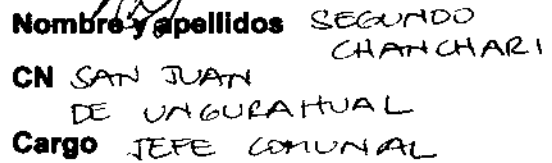 Nombre y apellidos SEGUNDO
CHANCHARI
CN SAN JUAN
DE UNGURAHUAL
Cargo JEFE COMUNAL